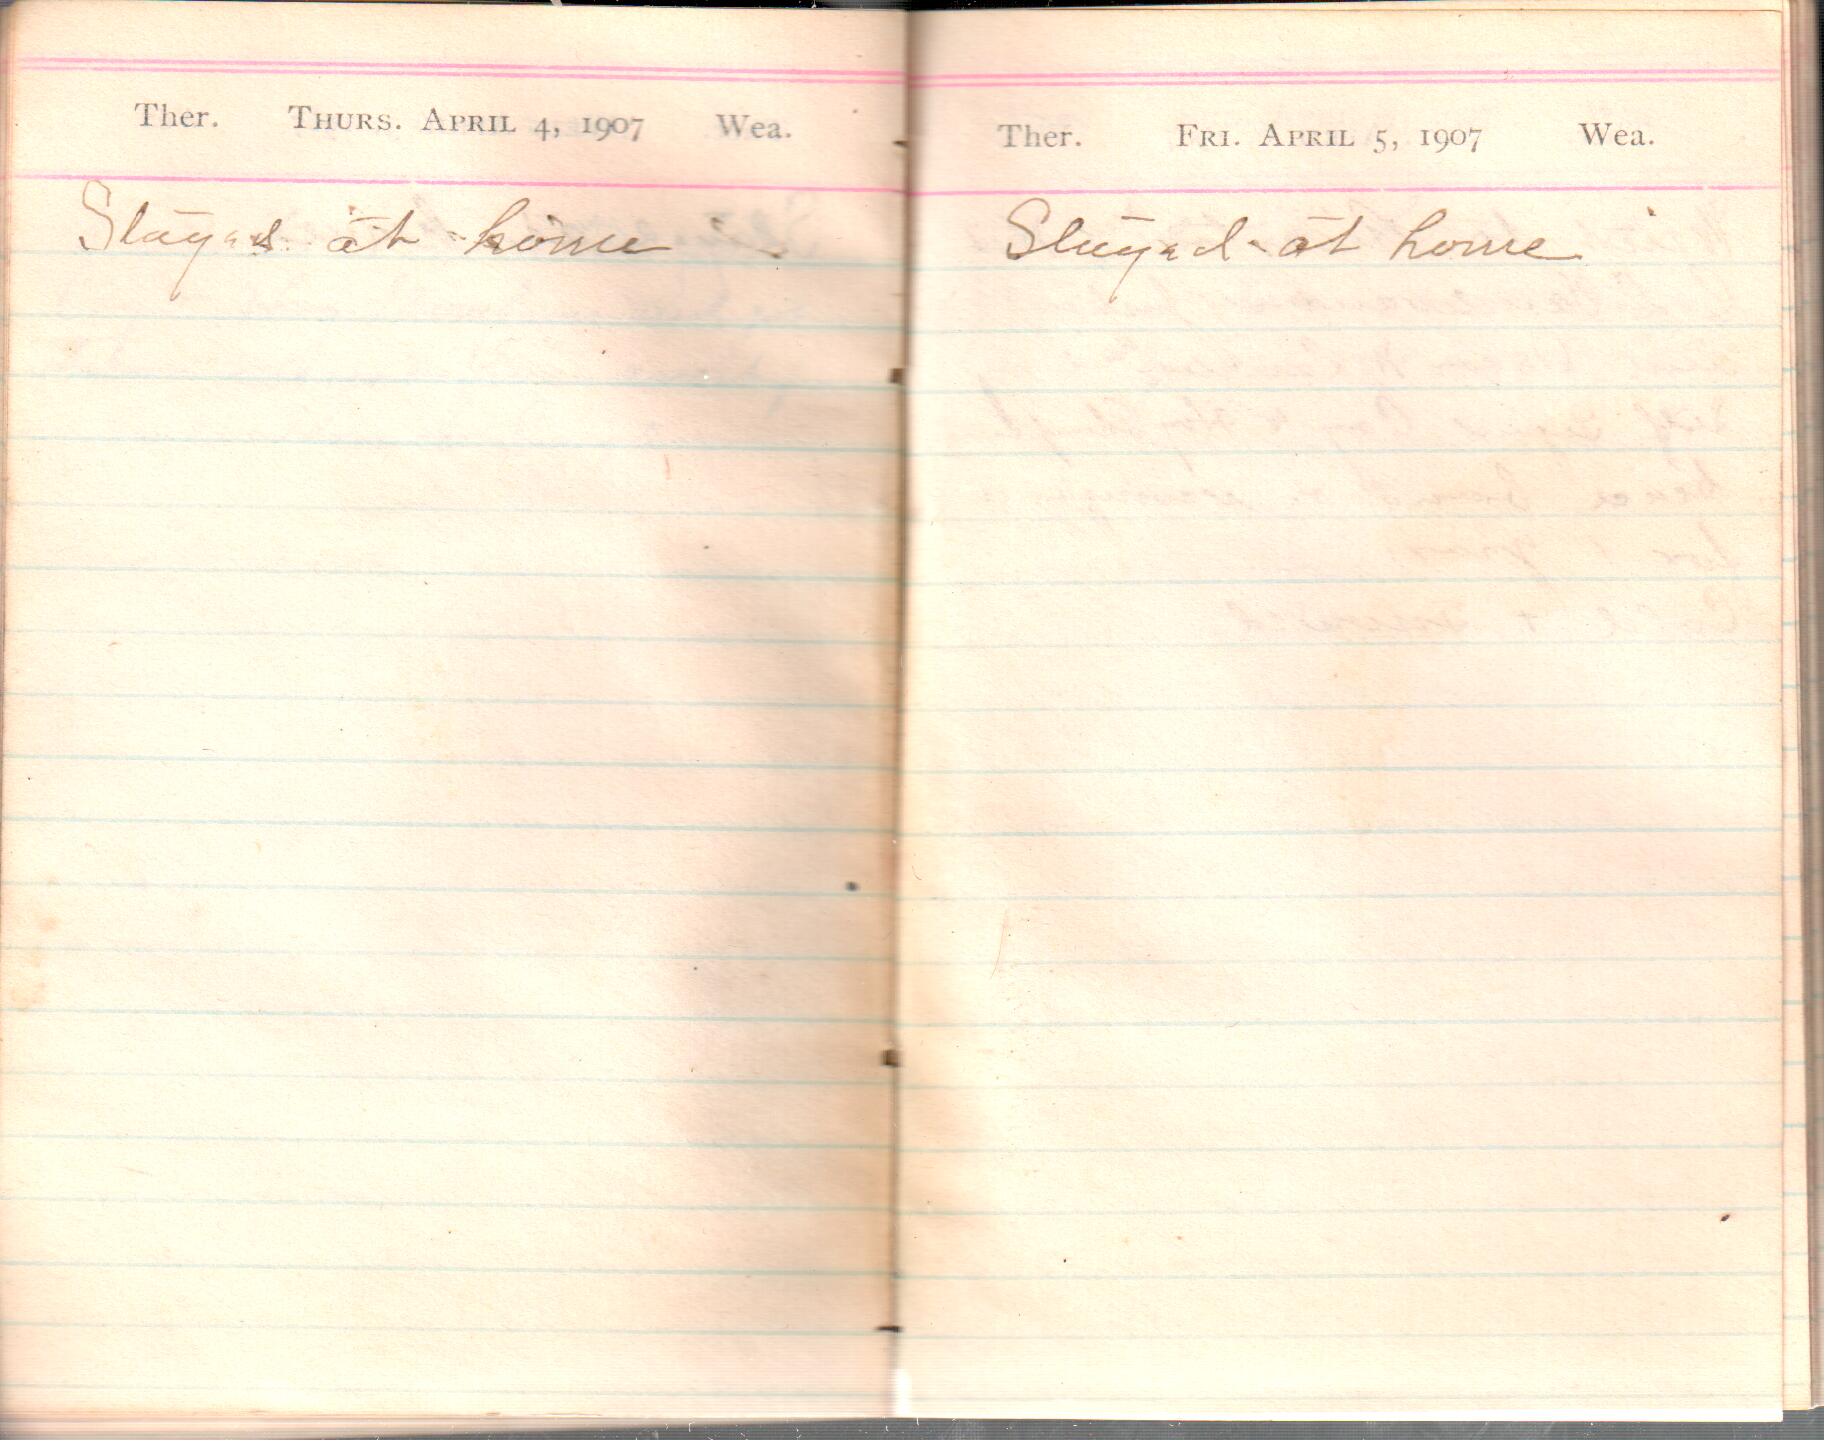 Ther. THURS. APRIL 4, 1907 Wea.
Stayed at home
Ther. FRI. APRIL 5, 1907 Wea.
Stayed at home